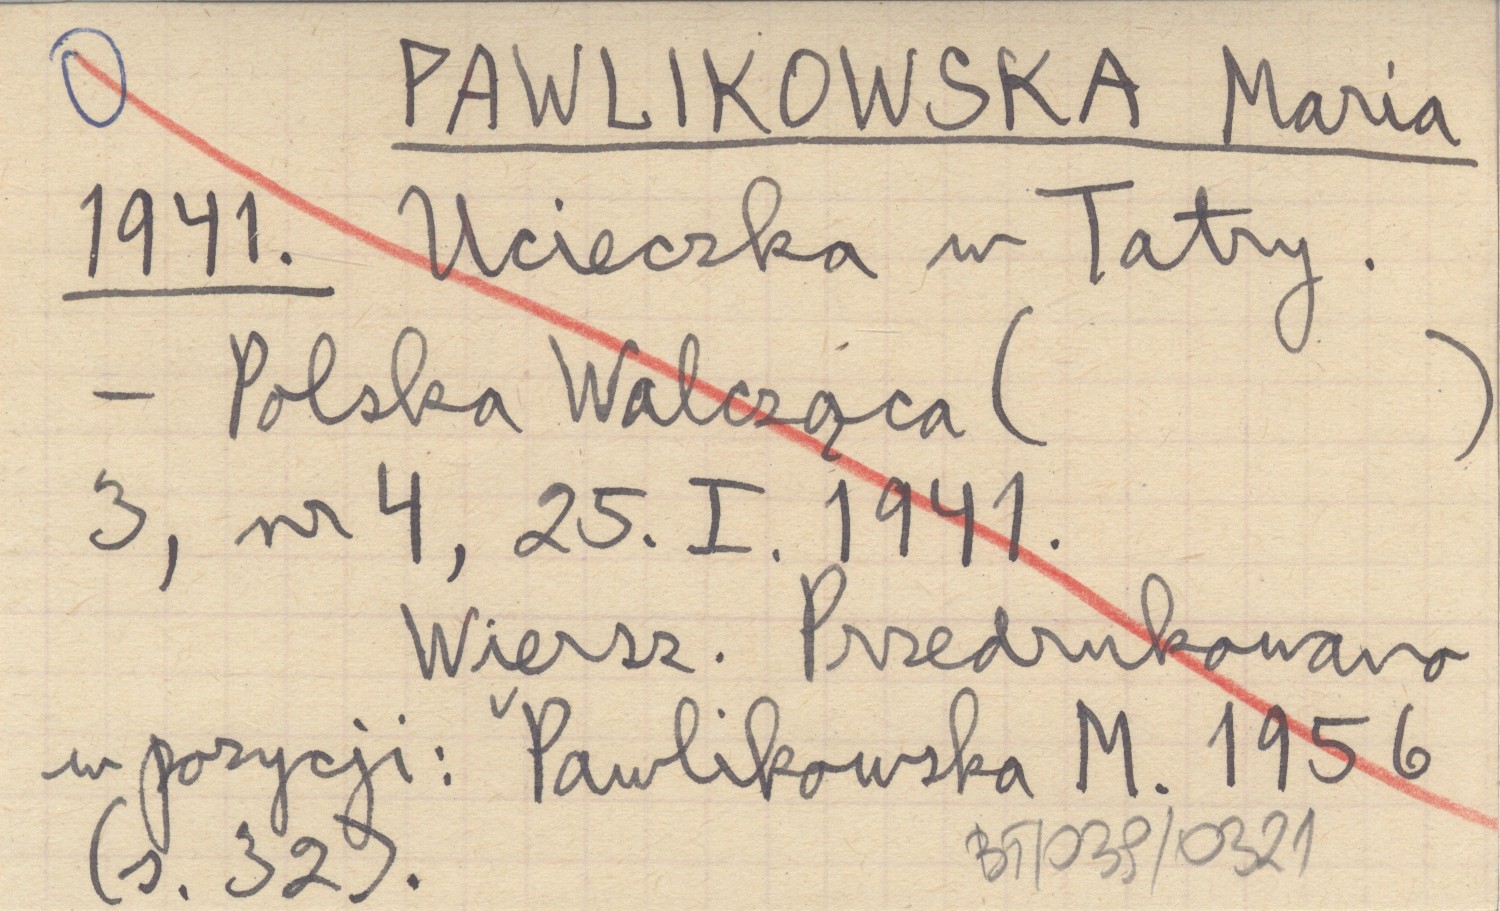 PAWLIKOWSKA Maria
1941. Ucieczka w Tatry.
– Polska Walcząca ( )
3, nr 4, 25. I. 1941.
Wiersz. Przedrukowano
w pozycji: ˅Pawlikowska M. 1956
(s. 32).
BT/039/0321